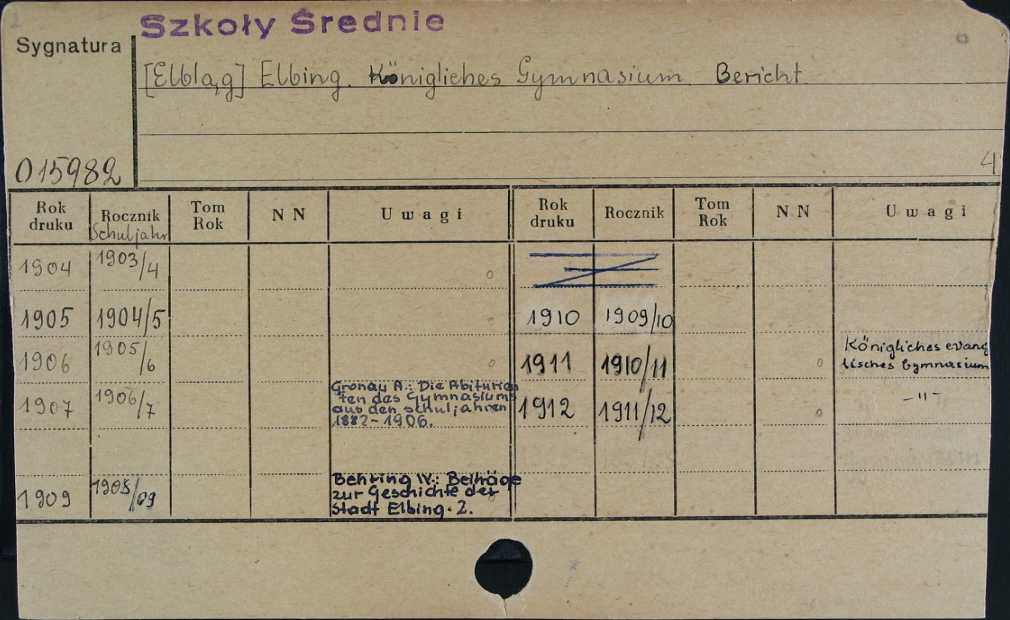 Szkoły Średnie
Sygnatura
[Elbląg] Elbing. Königliches Gymnasium Bericht
4
015982
Rok druku Rocznik Schuljahr Tom Rok NN Uwagi Rok druku Rocznik Tom Rok NN Uwagi
1904 1903/4
1905 1904/5 1910 1909/10
1906 1905/6 1911 1910/11 Königliches evang
lisches Gymnasium
1907 1906/7 Gronau A.: Die Abiturien
ten des Gymnasiums
aus den Schuljahren
1882-1906. 1912 1911/12 -"-
1909 1908/09 Behring W.: Beiträge
zur Geschichte der
Stadt Elbing. 2.